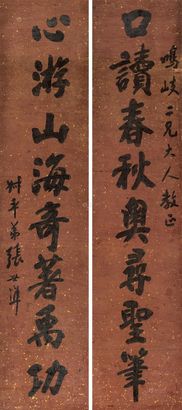 鳴岐二兄大人教正
口讀春秋奥尋聖筆
心游山海奇著禹功
尌平弟張世準